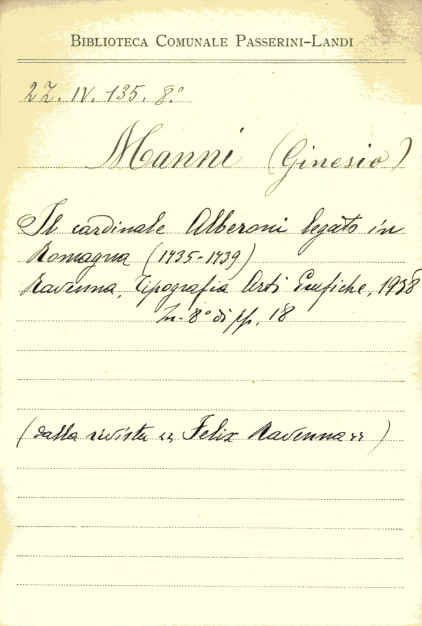 BIBLIOTECA COMUNALE PASSERINI-LANDI
2Z. IV. 135. 8.°
Manni (Ginesio)
Il cardinale Alberoni legato in
Romagna (1735-1739)
Ravenna, Tipografia Arti Grafiche, 1938
In-8° di pp. 18
(dalla rivista « Felix Ravenna »)